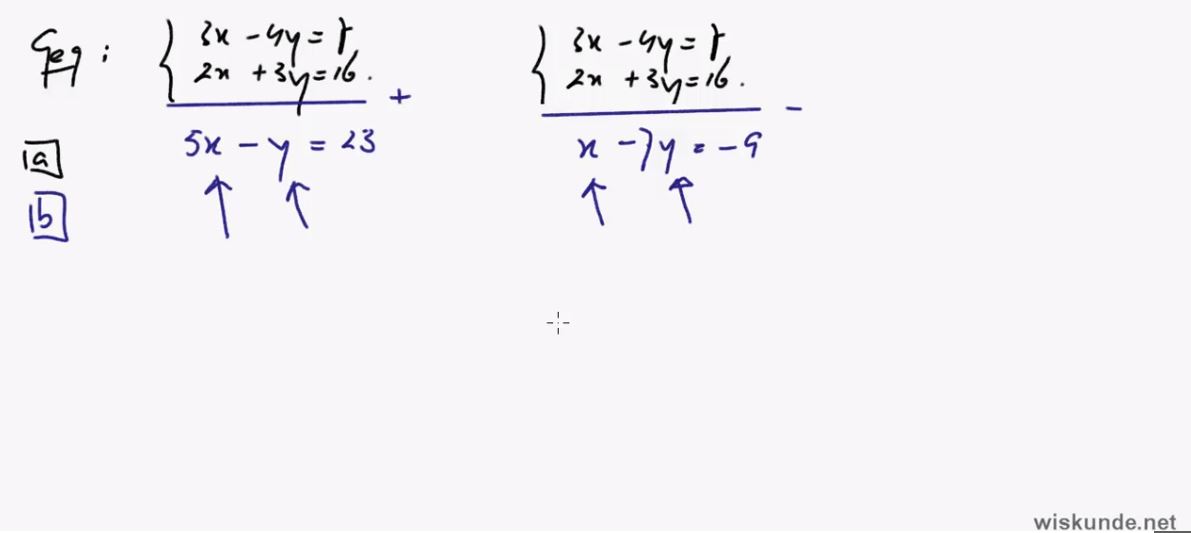 Geg :
3x - 4y = 7
2x + 3y = 16.
+
5x - y = 23
3x - 4y = 7
2x + 3y = 16.
-
x - 7y = -9
1a
1b
wiskunde.net